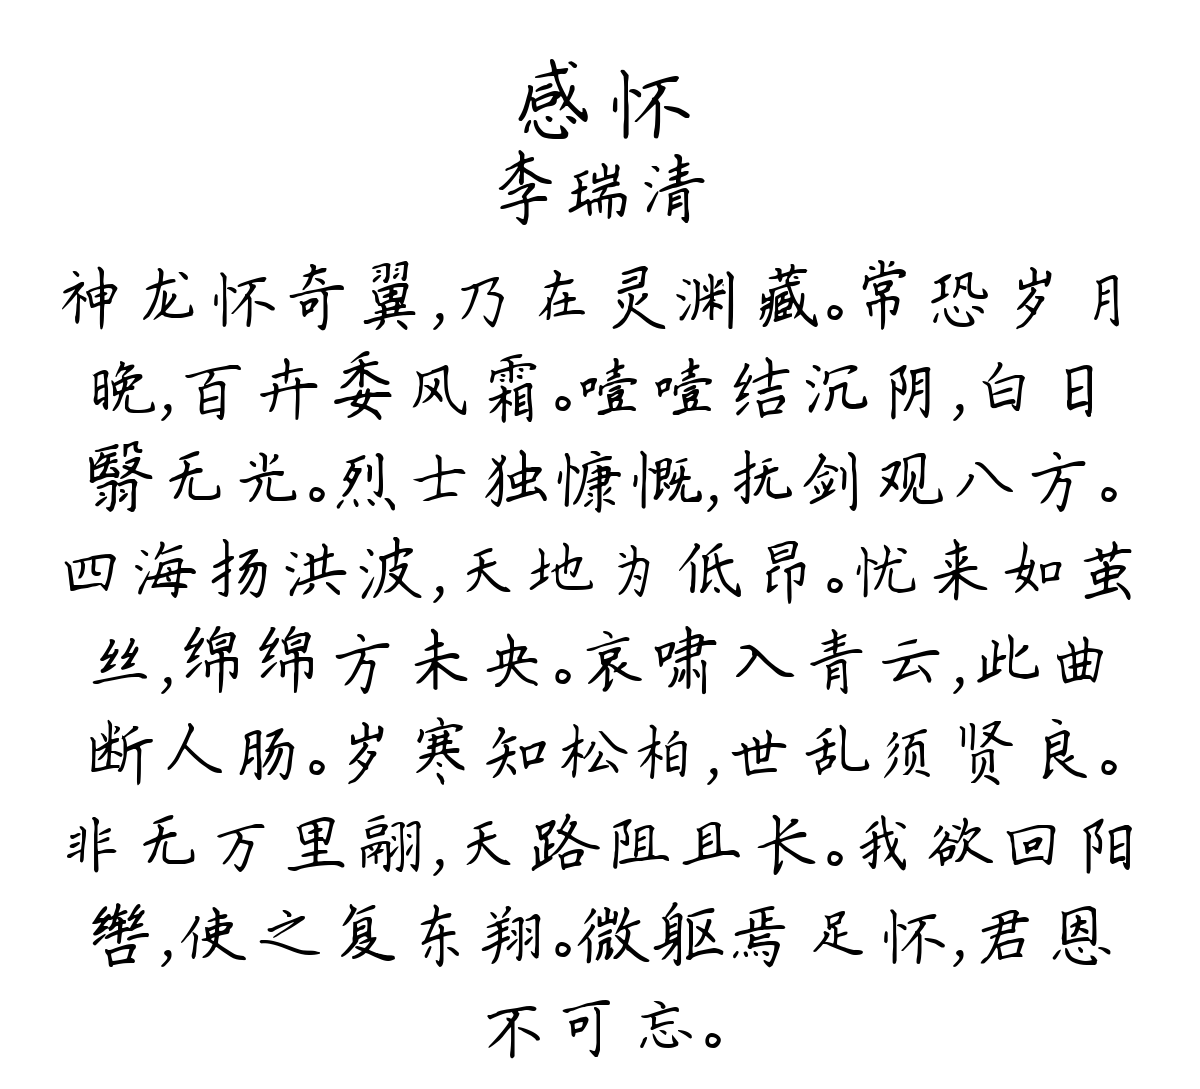 感怀
李瑞清
神龙怀奇翼,乃在灵渊藏。常恐岁月
晚,百卉委风霜。噎噎结沉阴,白日
翳无光。烈士独慷慨,抚剑观八方。
四海扬洪波,天地为低昂。忧来如茧
丝,绵绵方未央。哀啸入青云,此曲
断人肠。岁寒知松柏,世乱须贤良。
非无万里翮,天路阻且长。我欲回阳
辔,使之复东翔。微躯焉足怀,君恩
不可忘。